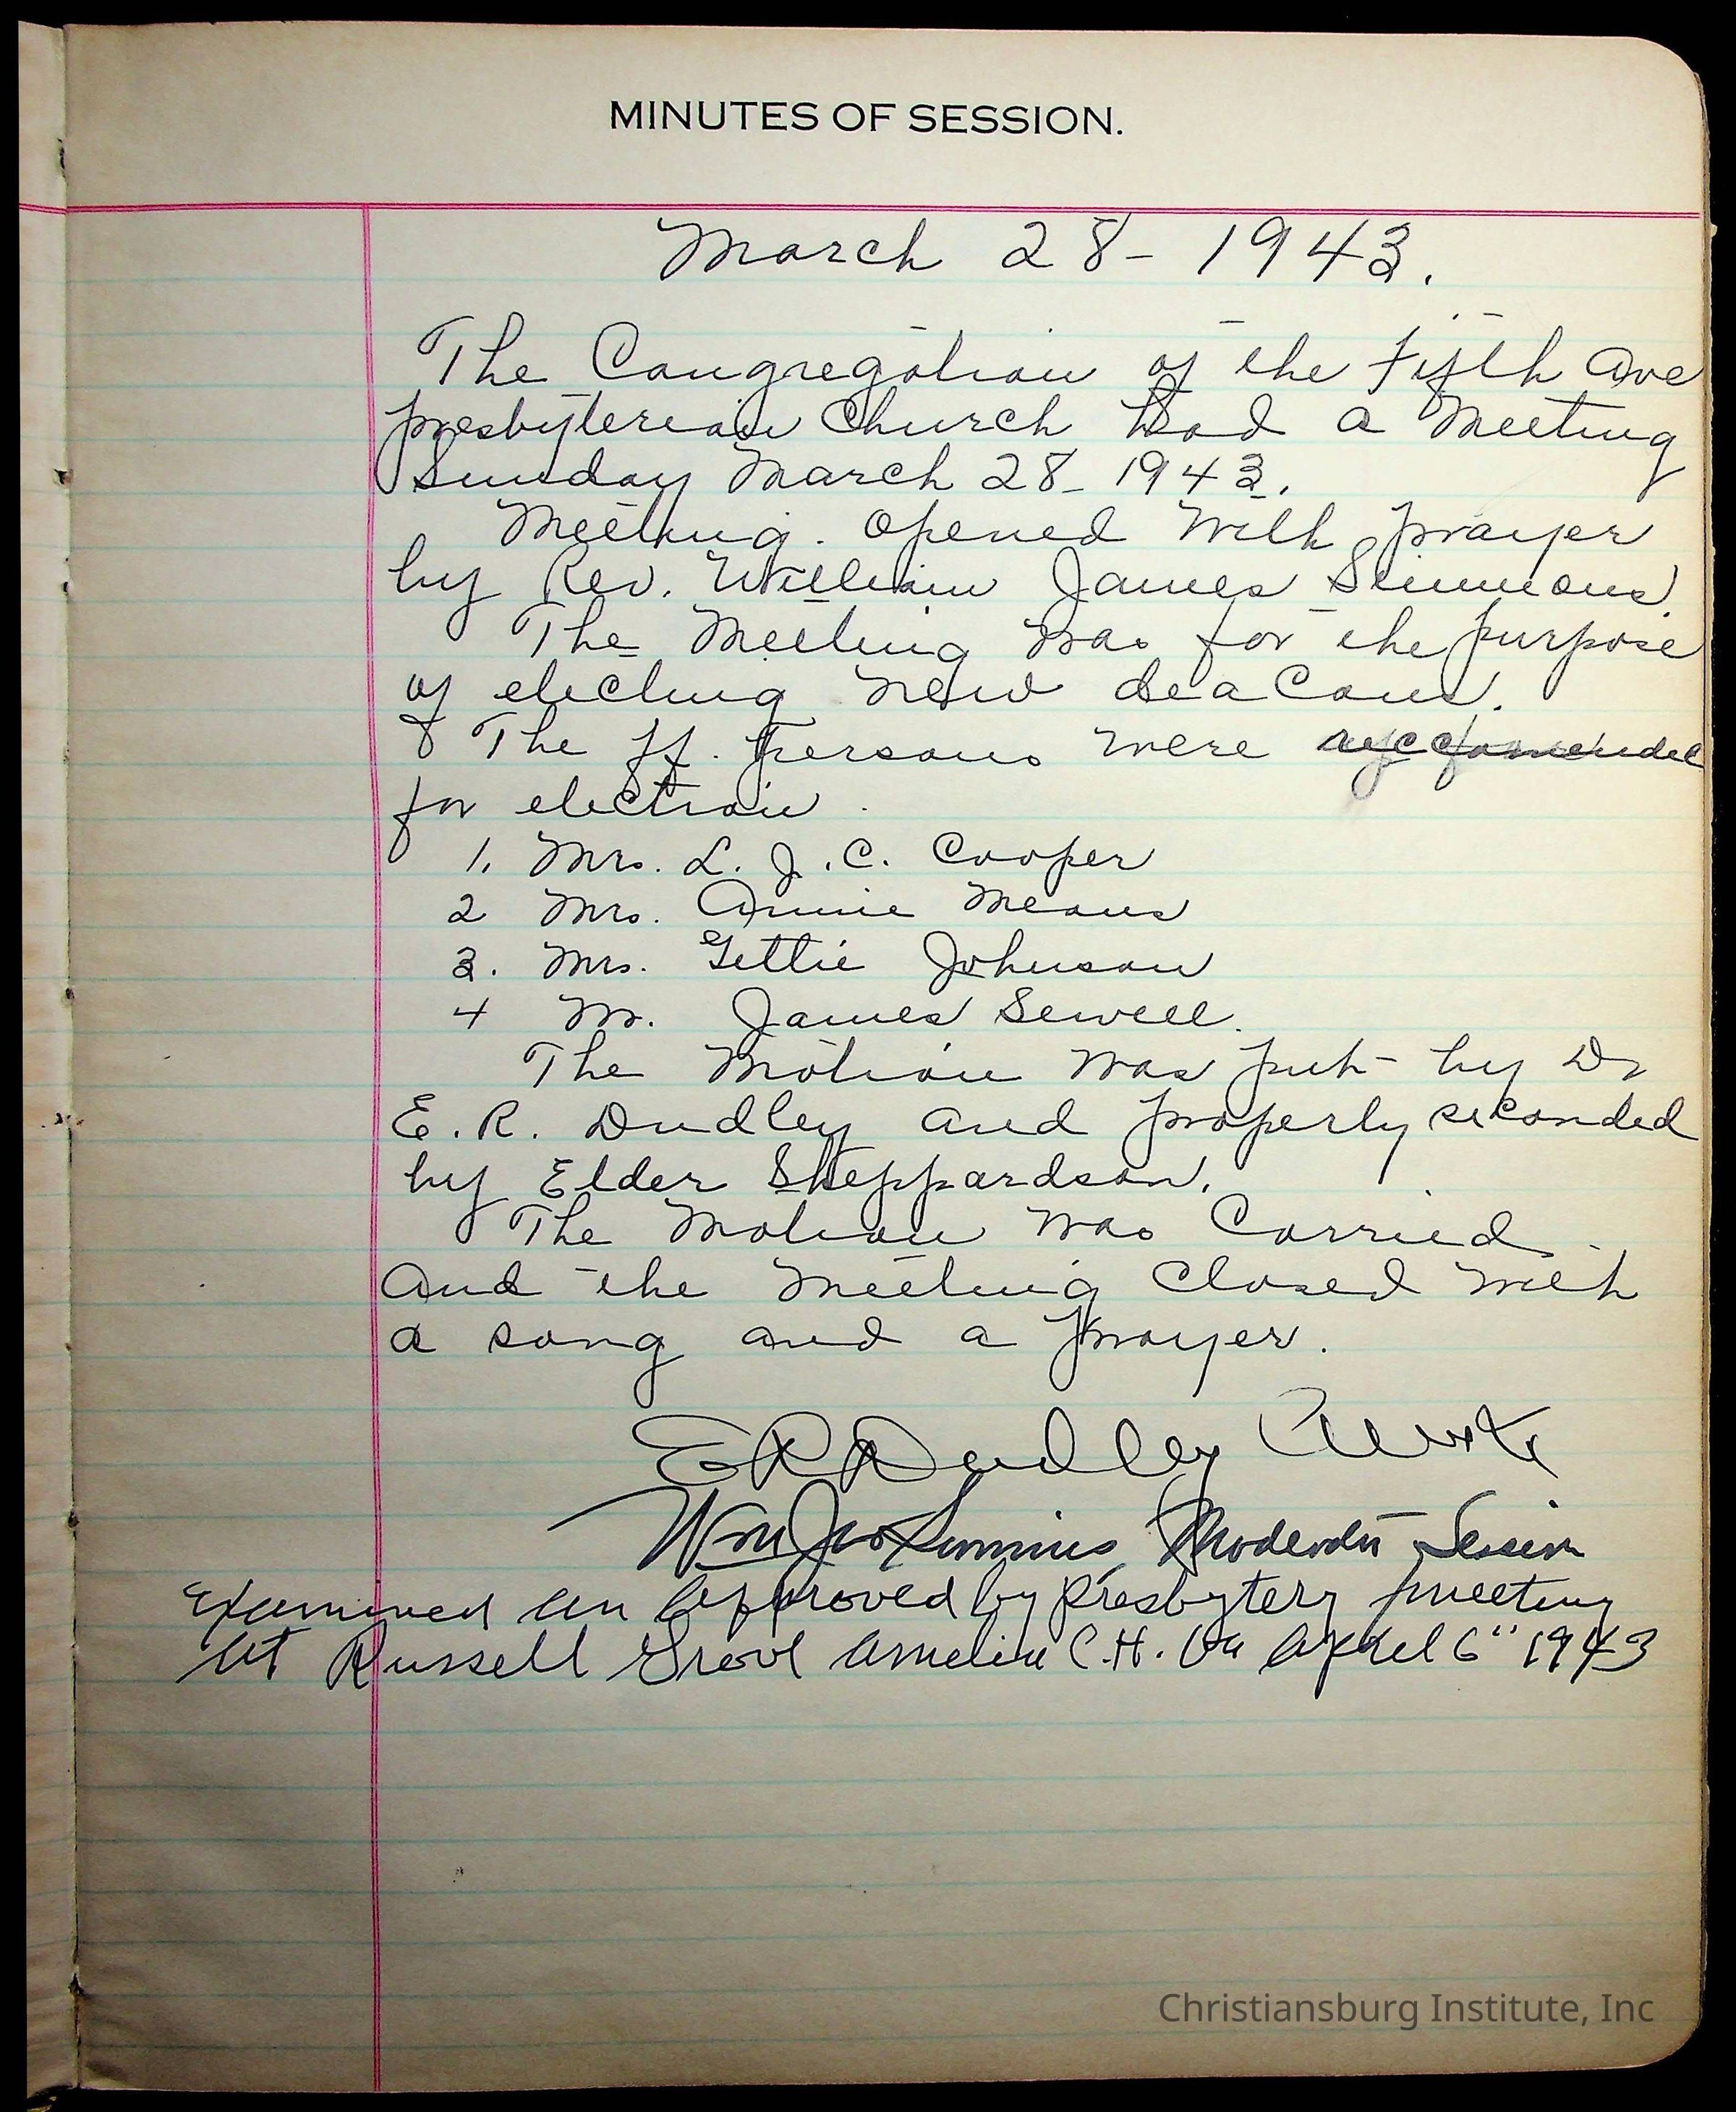 MINUTES OF SESSION.
March 28 - 1943.
The Congregation of the Fifth Ave
presbyterian Church had a Meeting
Sunday March 28 - 1943.
Meeting. opened With prayer
by Rev. William James Simmons.
The Meeting Was for the purpose
of electing New deacons.
The ff. persons Were reccomended
for election.
1. Mrs. L. J. C. Cooper
2 Mrs. Annie Means
3. Mrs. Gettie Johnson
4 Mr. James Sewell.
The Motion Was put by Dr
E. R. Dudley and properly seconded
by Elder Sheppardson.
The Motion Was Carried
And the Meeting Closed With
a song and a prayer.
E R Dudley Clerk
Wm Jas Simmons, Moderator Session
Examined an approved by Presbytery meeting
at Russell Grove Amelia C.H. Va April 6" 1943
Christiansburg Institute, Inc